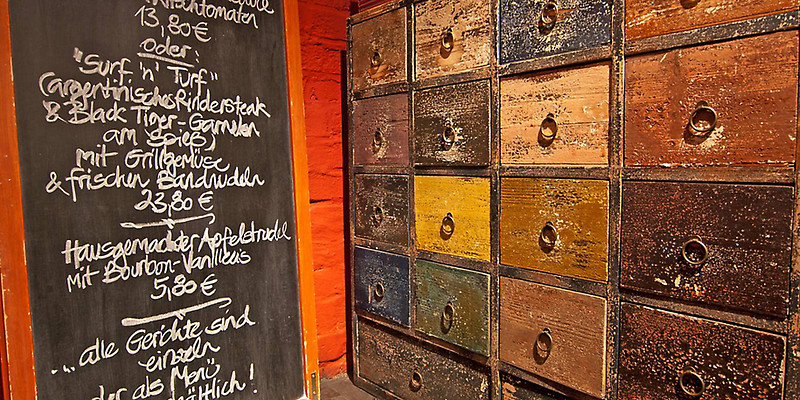 Kirschtomaten
13,80 €
oder:
"Surf 'n' Turf"
(argentinisches Rindersteak
& Black Tiger-Garnelen
am Spieß)
mit Grillgemüse
& frischen Bandnudeln
23,80 €
Hausgemachter Apfelstrudel
mit Bourbon-Vanilleeis
5,80 €
... alle Gerichte sind
einzeln
oder als Menü